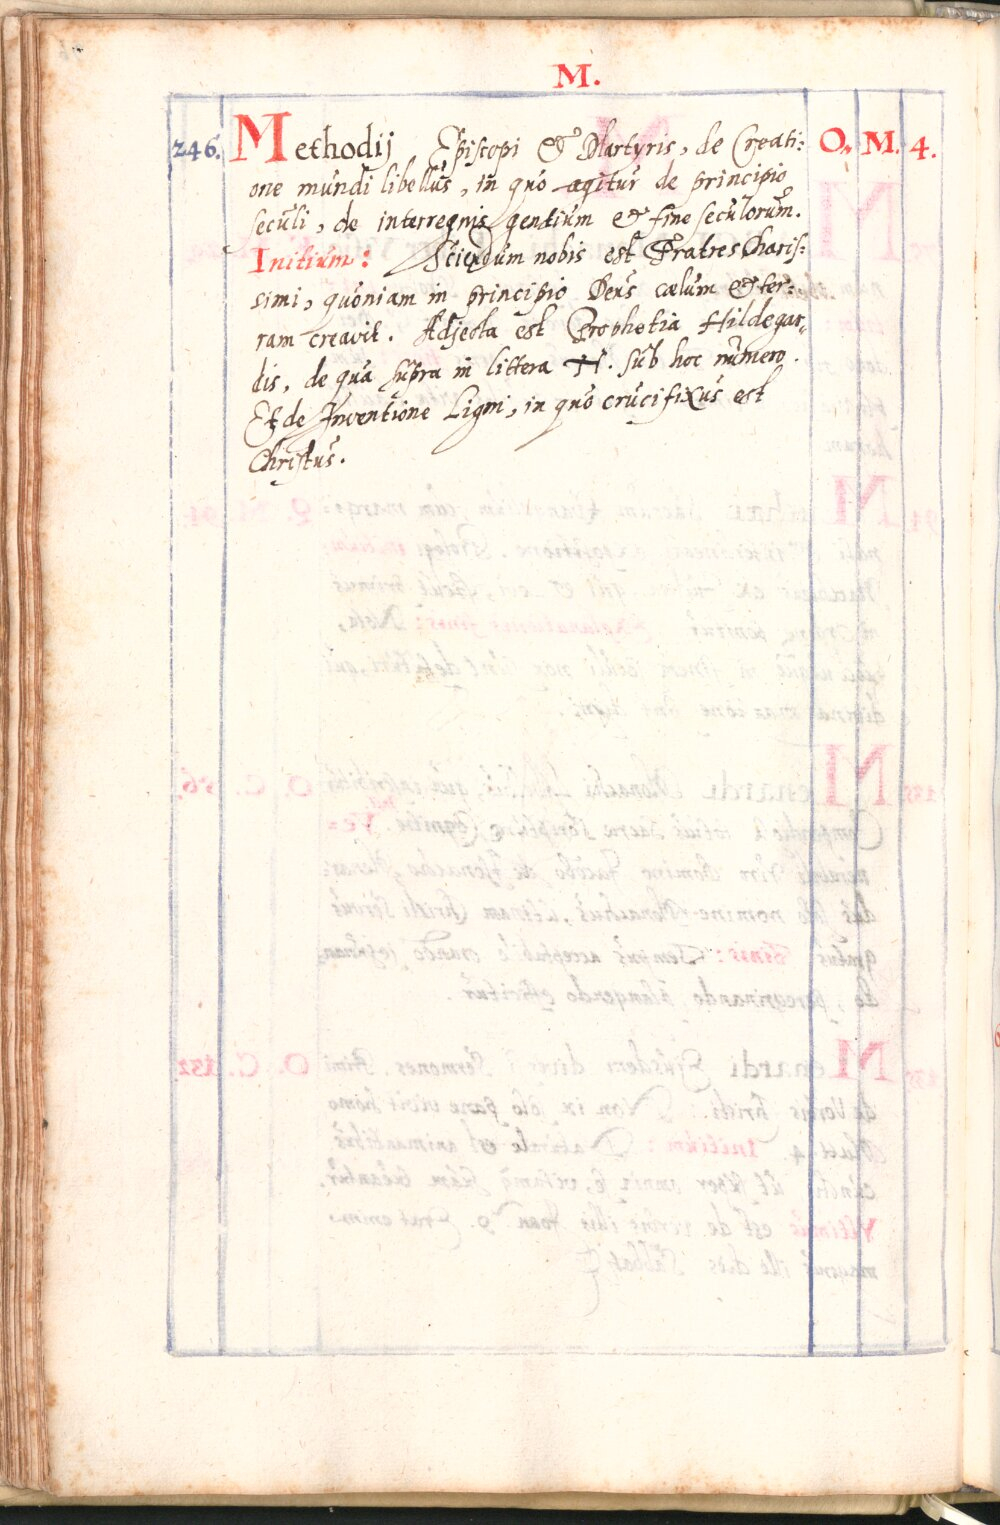 M.
246. Methodij Episcopi & Martyris, de Creati: O. M. 4.
one mundi libellus, in quo agitur de principio
seculi, de interregnis gentium & fine seculorum.
Initium: Sciendum nobis est Fratres Charis:
simi, quoniam in principio Deus cælum & ter:
ram creavit. Adjecta est Prophetia Hildegar,
dis, de qua supra in littera H. sub hoc numero.
Et de Inventione Ligni, in quo crucifixus est
Christus.